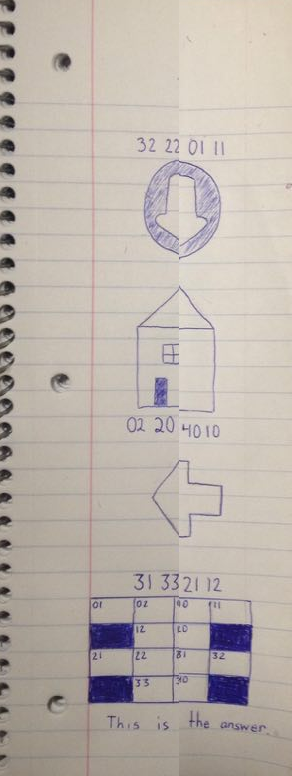 32 22 01 11
02 20 40 10
31 33 21 12
01 02 40 11
12 20
21 22 31 32
33 30
This is the answer.